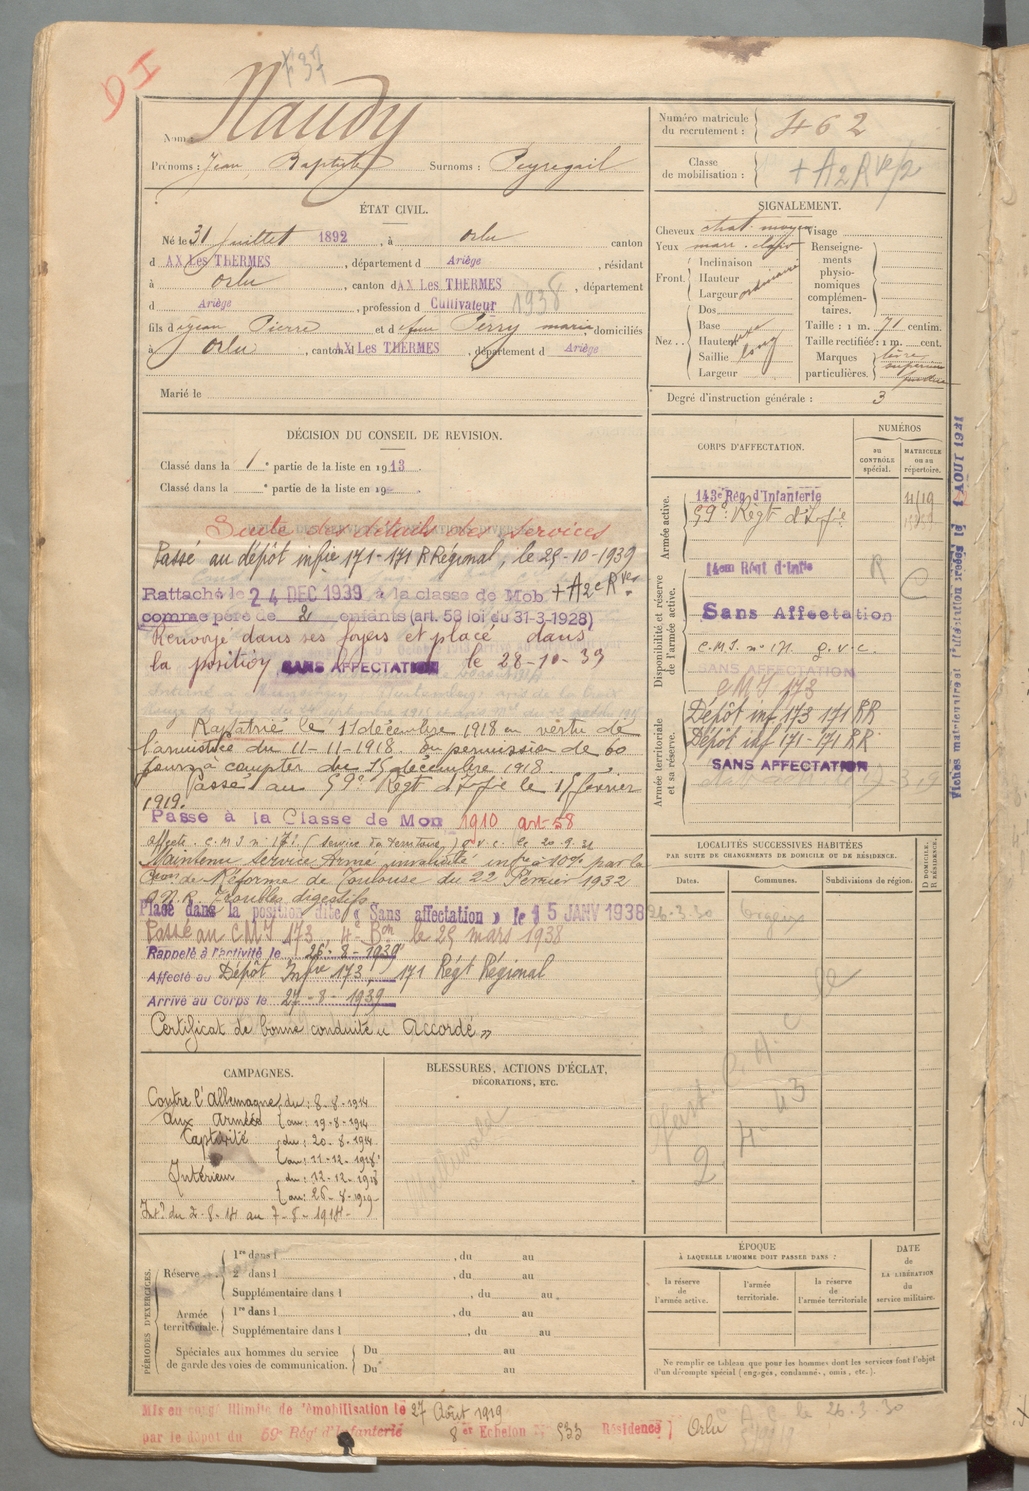 DI
Nom : Naudy
Prénoms : Jean, Baptiste Surnoms : Peyregail
Numéro matricule du recrutement : 462
Classe de mobilisation : + A2 R ve/2
ÉTAT CIVIL.
Né le 31 Juillet 1892, à Orlu canton
d AX Les THERMES, département d Ariège, résidant
à Orlu, canton d AX Les THERMES, département
d Ariège, profession d Cultivateur 1938
fils d Jean Pierre et d Perry marie domiciliés
à Orlu, canton d AX Les THERMES, département d Ariège
Marié le
SIGNALEMENT.
Cheveux chat. moyen Visage
Yeux marr. clair
Front. Inclinaison
Hauteur
Largeur ordinaire
Nez.. Dos
Base
Hauteur
Saillie long
Largeur
Renseignements physionomiques complémentaires.
Taille : 1 m. 71 centim.
Taille rectifiée : 1 m. cent.
Marques particulières. lèvre
Degré d'instruction générale : 3
DÉCISION DU CONSEIL DE REVISION.
Classé dans la 1e partie de la liste en 1913.
Classé dans la e partie de la liste en 19
Suite des détails des services
Passé au dépôt infie 171-171 R Régional, le 25-10-1939
Rattaché le 24 DEC 1939 à la classe de Mob + A2e Rve
comme père de 2 enfants (art. 58 loi du 31-3-1928)
Renvoyé dans ses foyers et placé dans
la position SANS AFFECTATION le 28-10-39
Rapatrié le 11 décembre 1918 en vertu de
l'armistice du 11-11-1918. En permission de 60
jours à compter du 15 décembre 1918.
Passé au 59e Régt d'Infie le 15 février
1919.
Passé à la Classe de Mob 1910 art 58
Affecté C.M.I n° 171 (service du territoire) g v c. le 20.9.31
Maintenu service Armé invalidité infre à 10% par la
Cson de Réforme de Toulouse du 22 Février 1932
Troubles digestifs.
Placé dans la position dite « Sans affectation » le 15 JANV 1938
Passé au CMI 173, 4e Bon le 25 mars 1938
Rappelé à l'activité le 26-8-1939
Affecté au Dépôt Infie 173, 171 Régt Régional
Arrivé au Corps le 27-8-1939
Certificat de bonne conduite « Accordé »
CORPS D'AFFECTATION.
NUMÉROS
au CONTRÔLE spécial.
MATRICULE ou au répertoire.
Armée active.
143e Rég d'Infanterie
59e Régt d'Infie
Disponibilité et réserve de l'armée active.
14em Régt d'Infie R
Sans Affectation
C.M.I. n° 171. g.v.c.
SANS AFFECTATION
CMI 173
Armée territoriale et sa réserve.
Dépôt inf 173 171 RR
Dépôt inf 171-171 RR
SANS AFFECTATION
LOCALITÉS SUCCESSIVES HABITÉES
PAR SUITE DE CHANGEMENTS DE DOMICILE OU DE RÉSIDENCE.
Dates. Communes. Subdivisions de région. D DOMICILE. R RÉSIDENCE.
26-3.30 Orgeix
CAMPAGNES.
Contre l'Allemagne du : 8-8-1914
Aux Armées au : 19-8-1914
Captivité du : 20-8-1914
au : 11-12-1918
Intérieur du : 12-12-1918
au : 26-8-1919
Intr du 2-8-14 au 7-8-1914
BLESSURES, ACTIONS D'ÉCLAT,
DÉCORATIONS, ETC.
PÉRIODES D'EXERCICES.
Réserve 1re dans l , du au
2e dans l , du au
Supplémentaire dans l , du au
Armée territoriale. 1re dans l , du au
Supplémentaire dans l , du au
Spéciales aux hommes du service de garde des voies de communication. Du au
Du au
ÉPOQUE
À LAQUELLE L'HOMME DOIT PASSER DANS :
la réserve de l'armée active.
l'armée territoriale.
la réserve de l'armée territoriale
DATE de LA LIBÉRATION du service militaire.
Ne remplir ce tableau que pour les hommes dont les services font l'objet
d'un décompte spécial (engagés, condamnés, omis, etc.).
Mis en congé illimité de démobilisation le 27 Août 1919
par le dépôt du 59e Rég d'Infanterie 8er Echelon N° 533 Résidence Orlu